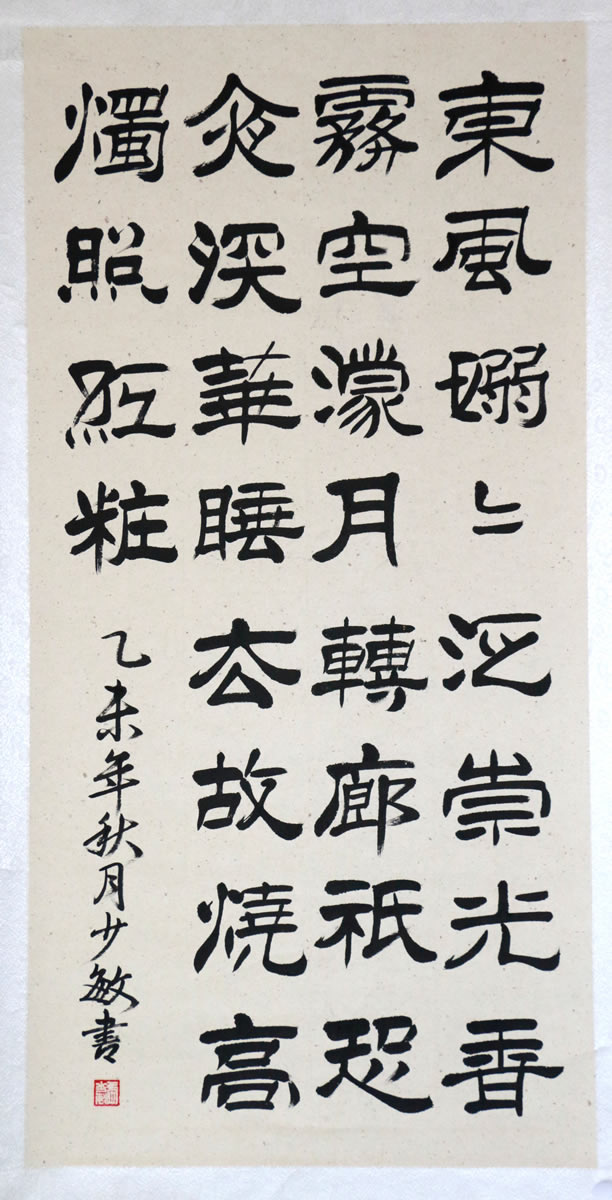 東風嫋〻泛崇光香
霧空濛月轉廊祇恐
夜深華睡去故燒高
燭照紅粧
乙未年秋月少敏書